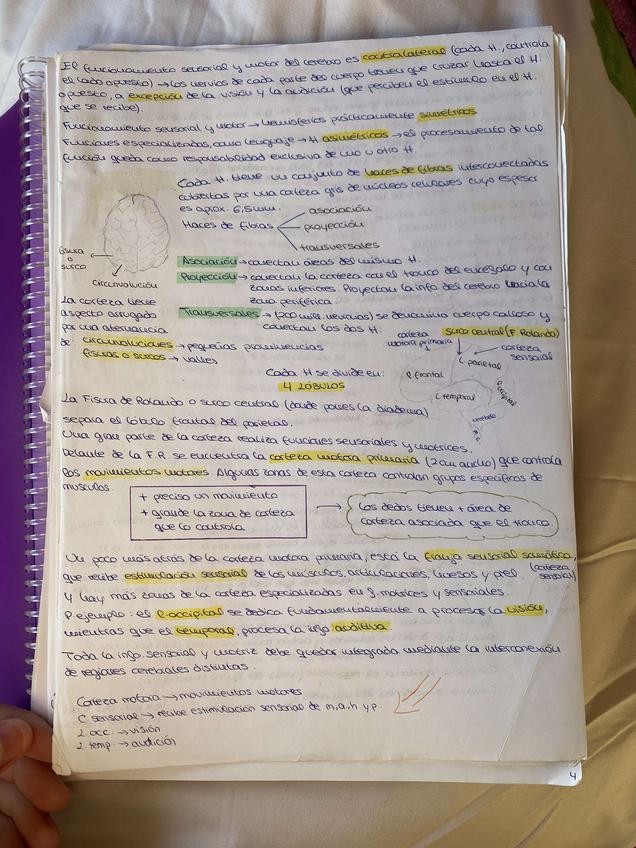 El funcionamiento sensorial y motor del cerebro es contralateral (cada H. controla
el lado opuesto) → los nervios de cada parte del cuerpo tienen que cruzar hasta el H.
opuesto, a excepción de la visión y la audición (que perciben el estímulo en el H.
que se recibe).
Funcionamiento sensorial y motor → hemisferios prácticamente simétricos
Funciones especializadas, como lenguaje → H asimétricos → el procesamiento de tal
función queda como responsabilidad exclusiva de uno u otro H.
Cada H. tiene un conjunto de haces de fibras interconectadas
cubiertas por una corteza gris de núcleos celulares cuyo espesor
es aprox. 6,5mm.
Haces de fibras
asociación
proyección
transversales
fisura
o
surco
circunvolución
Asociación → conectan áreas del mismo H.
Proyección → conectan la corteza con el tronco del encéfalo y con
zonas inferiores. Proyectan la info del cerebro hacia la
zona periférica.
Transversales → (200 mill. nervios) se denomina cuerpo calloso y
conectan los dos H.
La corteza tiene
aspecto arrugado
por una alternancia
de: circunvoluciones → pequeñas prominencias
fisuras o surcos → valles
corteza
motora primaria
surco central (F Rolando)
corteza
sensorial
L frontal
L parietal
L temporal
L occipital
Cada H se divide en:
4 LÓBULOS
La Fisura de Rolando o surco central (donde pones la diadema)
separa el lóbulo frontal del parietal.
Una gran parte de la corteza realiza funciones sensoriales y motrices.
Delante de la F.R. se encuentra la corteza motora primaria (2cm ancho) que controla
los movimientos motores. Algunas zonas de esta corteza controlan grupos específicos de
músculos.
+ preciso un movimiento
+ grande la zona de corteza
que lo controla
→
Los dedos tienen + área de
corteza asociada que el tronco.
Un poco más atrás de la corteza motora primaria, está la franja sensorial somática,
(corteza
sensorial)
que recibe estimulación sensorial de los músculos, articulaciones, huesos y piel
Y hay más zonas de la corteza especializadas en f. motrices y sensoriales.
P. ejemplo: el l. occipital se dedica fundamentalmente a procesar la visión,
mientras que el temporal, procesa la info auditiva.
Toda la info. sensorial y motriz debe quedar integrada mediante la interconexión
de regiones cerebrales distintas.
Corteza motora → movimientos motores
C sensorial → recibe estimulación sensorial de m, a, h. y p.
L. occ. → visión
L. temp. → audición
4